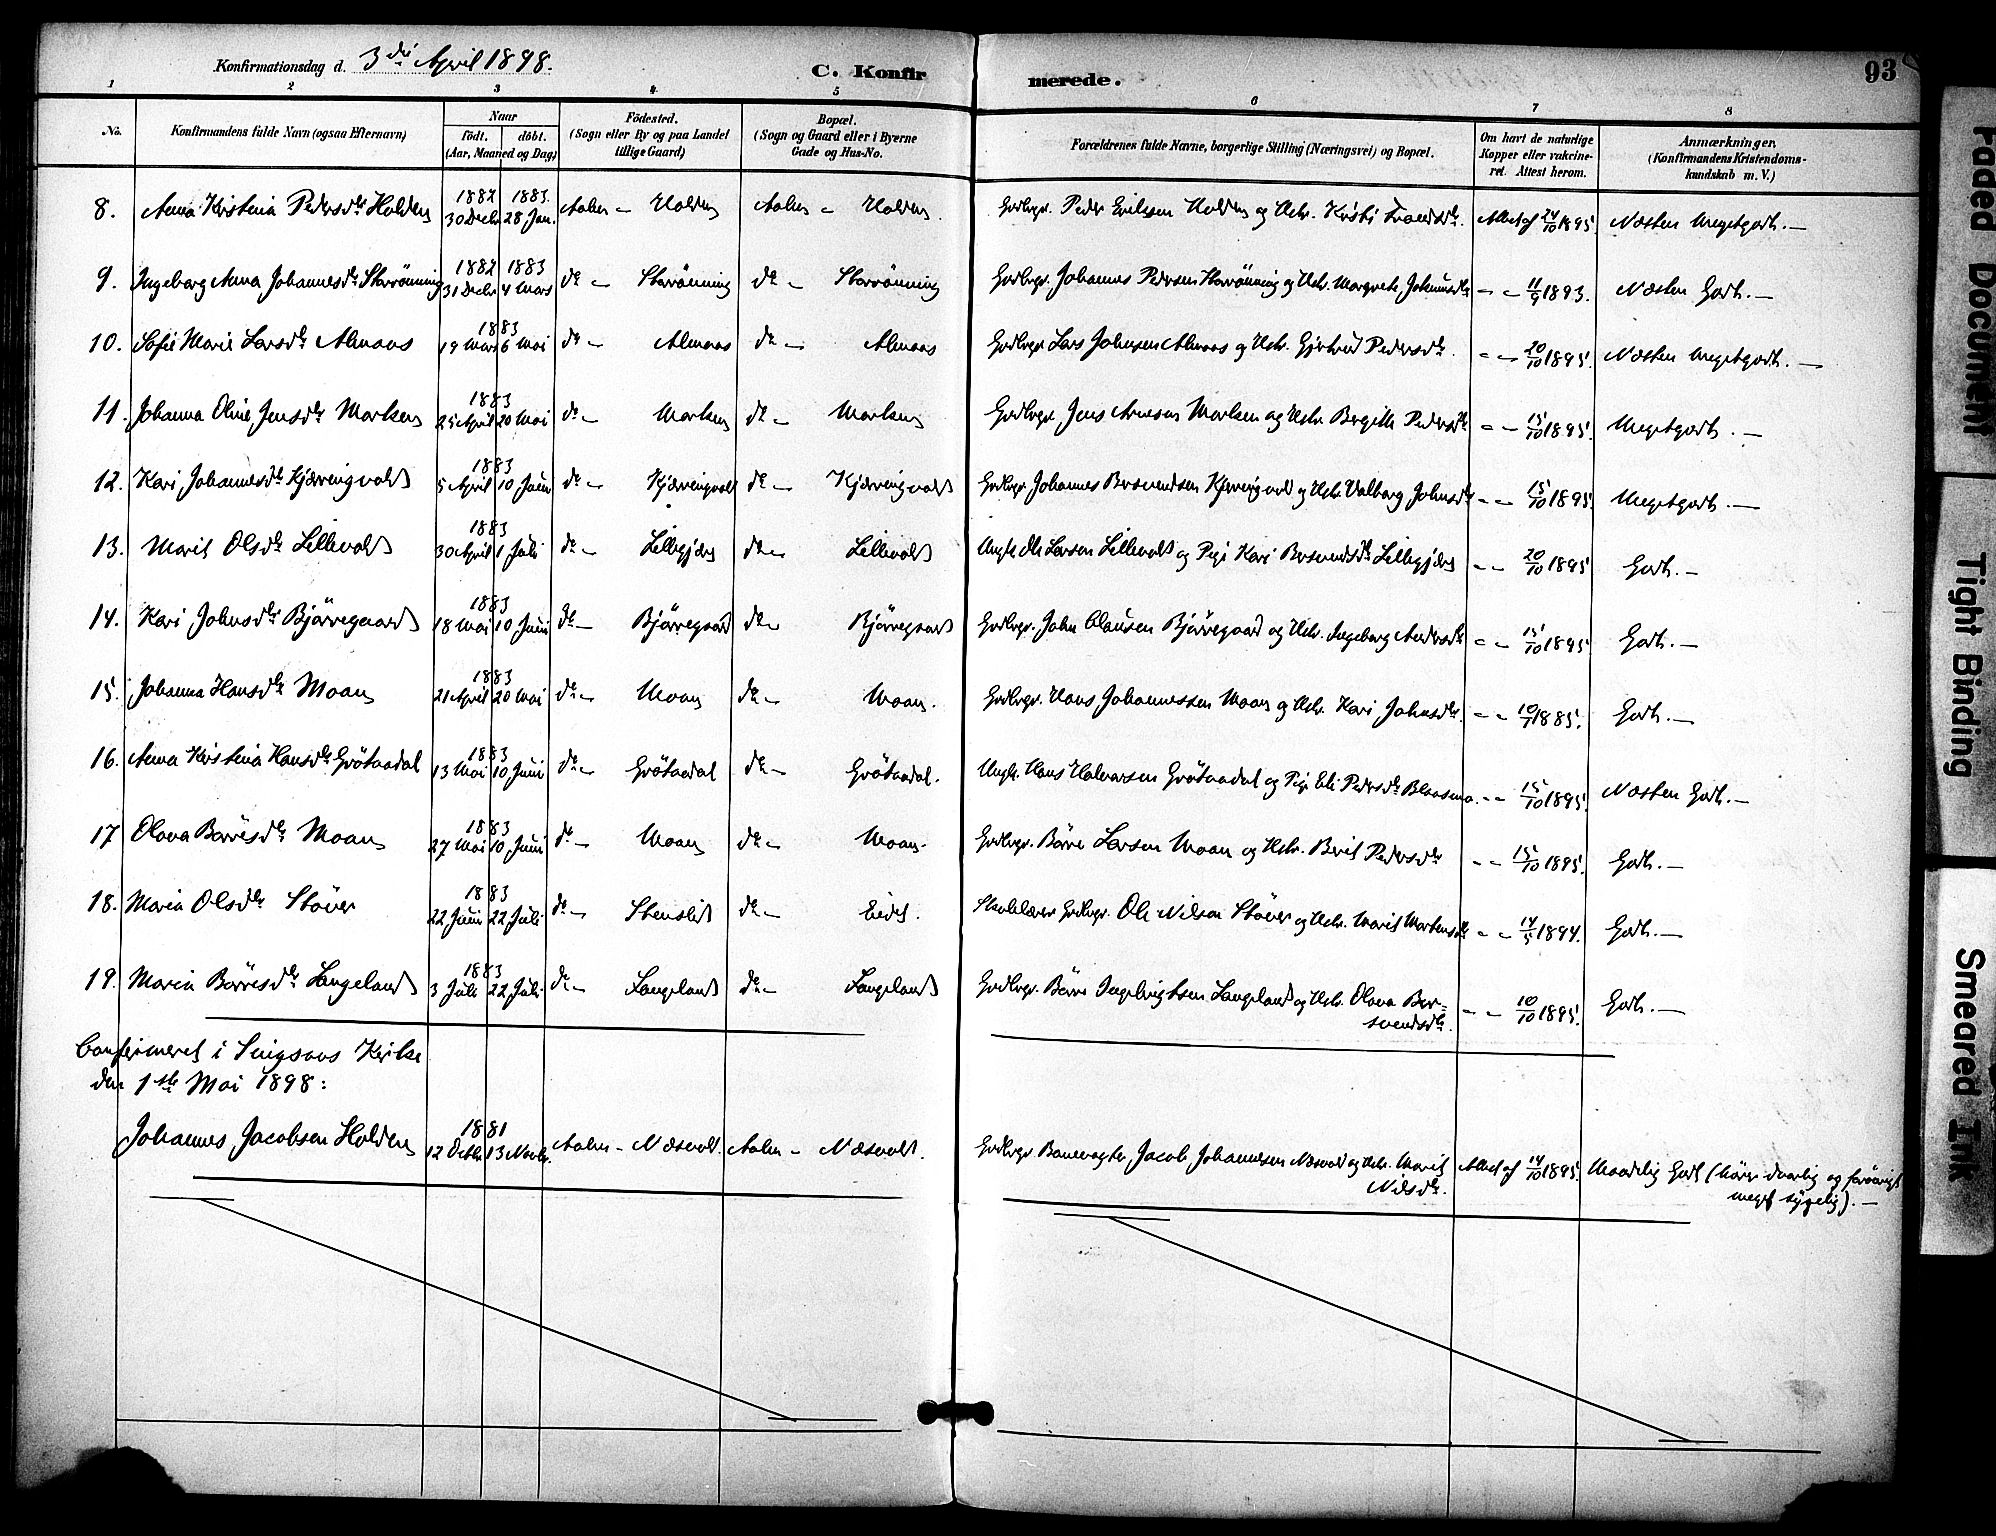 Konfirmationsdag d. 3die April 1898. C. Konfirmerede. 93
1 2 3 4 5 6 7 8
No. Konfirmandens fulde Navn (ogsaa Efternavn) Naar födt. döbt. (Aar, Maaned og Dag) Födested. (Sogn eller By og paa Landet tillige Gaard) Bopæl. (Sogn og Gaard eller i Byerne Gade og Hus-No. Forældrenes fulde Navne, borgerlige Stilling (Næringsvei) og Bopæl. Om havt de naturlige Kopper eller vakcineret. Attest herom. Anmærkninger. (Konfirmandens Kristendomskundskab m. V.)
8. Anna Kristina Pedersdtr Holden 1882 30 Decbr 1883. 28 Jan. Aalen - Holden Aalen - Holden. Grdbrgr. Peder Eriksen Holden og Hstr. Kristi Troendsdtr. Attest af 24/10 1895. Næsten Megetgodt. -
9. Ingeborg Anna Johannesdtr Storrönning 1882 31 Decbr 1883 4 Mars do - Storrönning do - Storrönning Grdbrgr. Johannes Pedersen Storrönning og Hstr. Margrete Johnsdtr - - 11/9 1893. Næsten Godt. -
10. Sofie Marie Larsdtr Almaas 1883 19 Mars 6 Mai do - Almaas do - Almaas Grdbrgr Lars Johnsen Almaas og Hstr. Gjertrud Pedersdtr. - - 20/10 1895. Næsten Megetgodt. -
11. Johanna Oline Jensdtr Morken 1883 25 April 20 Mai do - Morken do - Morken Grdbrgr. Jens Arnesen Morken og Hstr Bergitte Pedersdtr - - 15/10 1895. Megetgodt. -
12. Kari Johannesdtr Kjærringvold 1883 5 April 10 Juni do - Kjærringvold do - Kjærringvold Grdbrgr Johannes Bersvendsen Kjærringvold og Hstr. Valborg Johnsdtr - - 15/10 1895. Megetgodt. -
13. Marit Olsdtr Lillevold 1883 30 April 1 Juli do - Lillegjære do - Lillevold Ungk Ole Larsen Lillevold og Pige Kari Bersvendsdtr Lillegjære - - 20/10 1895 Godt. -
14. Kari Johnsdtr Björregaard 1883 18 Mai 10 Juni do - Björregaard do - Björregaard Grdbrgr. John Olausen Björregaard og Hstr. Ingeborg Andersdtr - - 15/10 1895 Godt. -
15. Johanna Hansdtr Moan 1883 21 April 20 Mai do - Moan do - Moan. Grdbrgr. Hans Johannessen Moan og Hstr. Kari Johnsdtr. - - 10/7 1885. Godt. -
16. Anna Kristina Hansdtr Grötaadal 1883 13 Mai 10 Juni do - Grötaadal do - Grötaadal. Ungk. Hans Halvarsen Grötaadal og Pige Eli Pedersdtr Blaasmo. - - 15/10 1895. Næsten Godt. -
17 Olava Börresdtr Moan 1883 27 Mai 10 Juni do - Moan do - Moan. Grdbrgr. Börre Larsen Moan og Hstr. Berit Pedersdtr - - 15/10 1895. Godt. -
18. Maria Olsdtr Stöver 1883 22 Juni 22 Juli do - Stenslid do - Eidet. Skolelærer Grdbrgr. Ole Nilsen Stöver og Hstr. Marit Mortensdtr - - 14/5 1894. Godt. -
19. Maria Börresdtr Langeland 1883 3 Juli 22 Juli do - Langeland do - Langeland Grdbrgr. Börre Ingebrigtsen Langeland og Hstr. Olava Bersvendsdtr. - - 10/10 1895. Godt. -
Confirmeret i Singsaas Kirke
den 1ste Mai 1898:
Johannes Jacobsen Holden 1881 12 Octbr 13 Novbr. Aalen - Næsvold. Aalen - Næsvold. Grdbrgr Banevogter Jacob Johannesen Næsvold og Hstr. Marit Nilsdtr. Attest af 14/10 1895. Maadelig Godt (hörer daarlig og forövrigt meget sygelig). -
Faded Document
Tight Binding
Smeared Ink